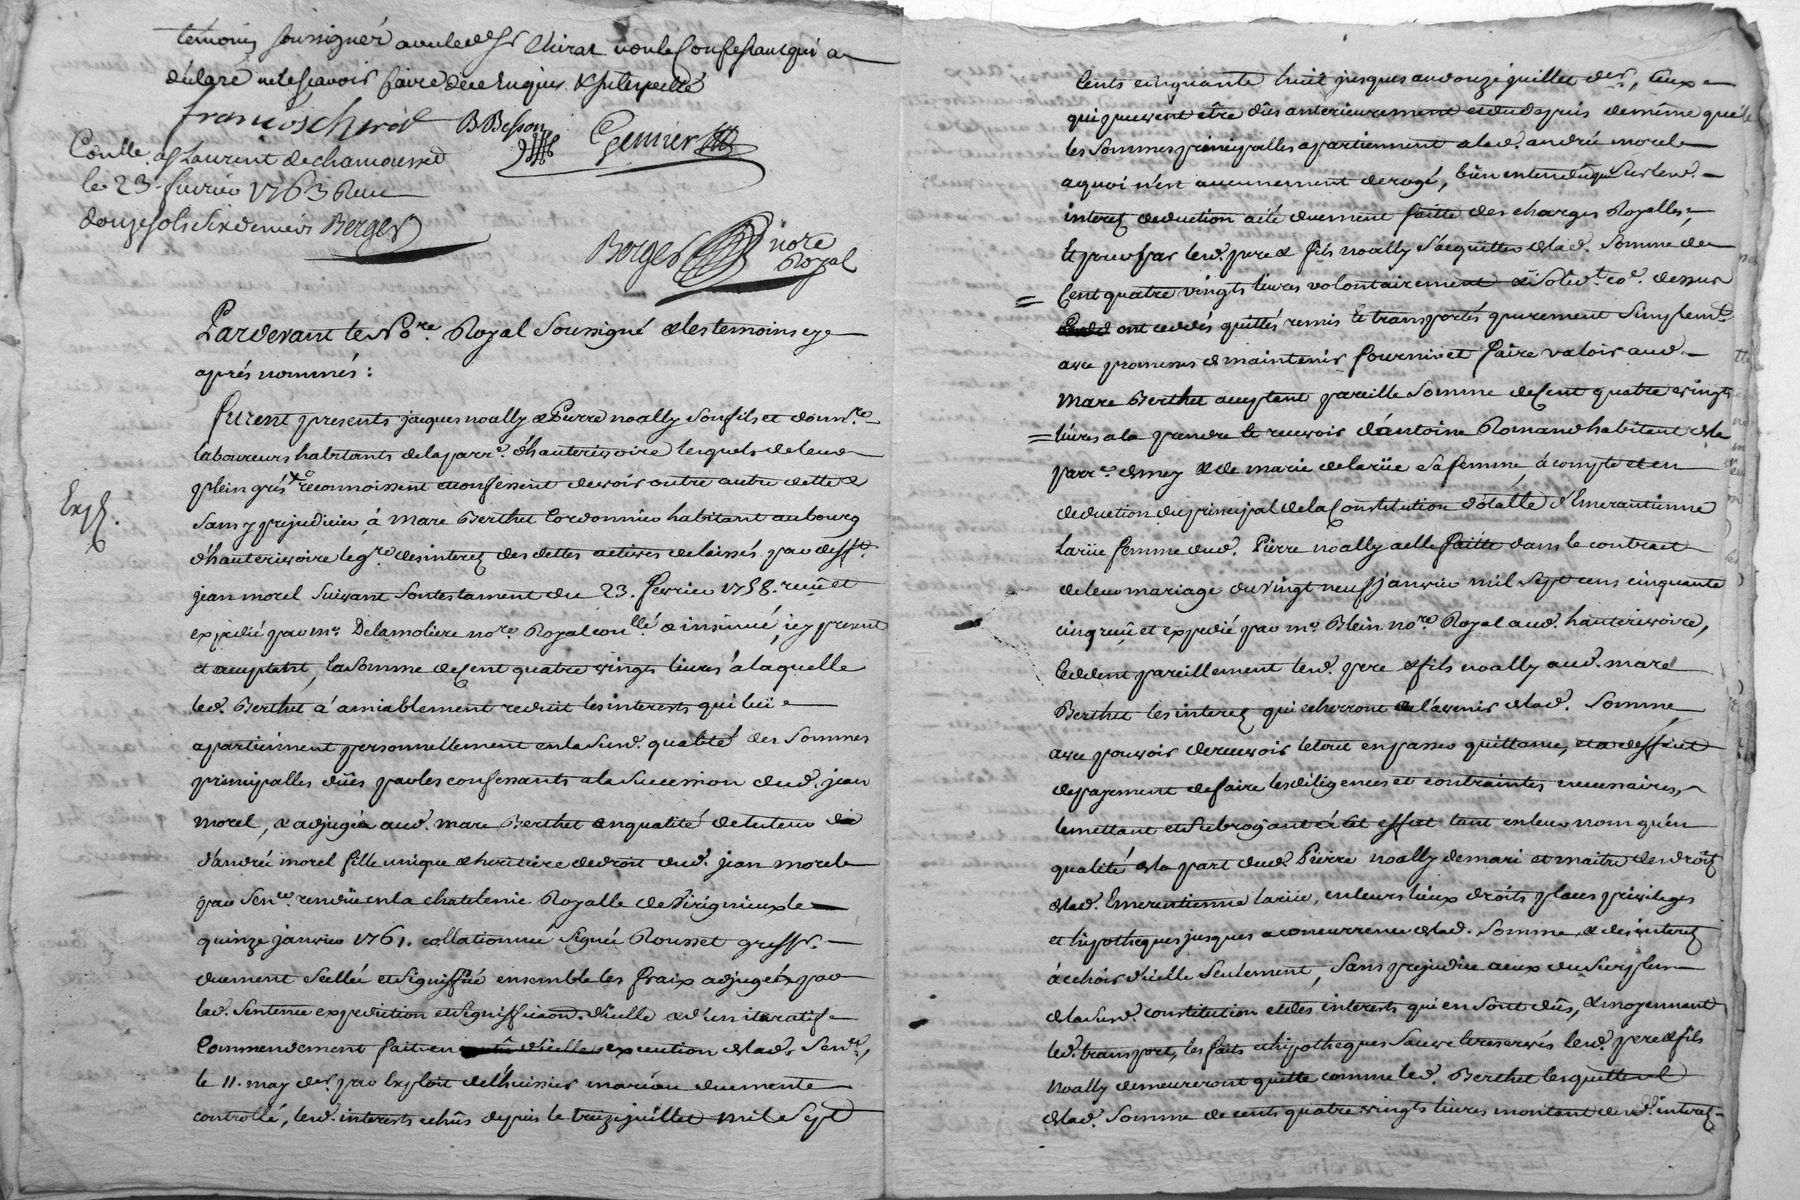 temoins soussignés avec led. Sr Chirat non les Confessants qui a
declaré ne le scavoir faire de ce enquis & interpellé
francois chirat B Besson Grenier
Conllé a St Laurent de chamousset
le 23 fevrier 1763 Recu
douze sols six deniers Berger
Berger nore
Royal
Pardevant le Nore. Royal Soussigné & les temoins cy
aprés nommés :
furent presents jacques noally & Pierre noally son fils et donnre.
laboureurs habitants de la parre. d'hauterivoire lesquels de leur
Exp.
plein gré reconnoissent et confessent devoir outre autre dette &
sans y prejudicier á marc Berthet Cordonnier habitant au bourg
d'hauterivoire legre. des interez des dettes actives delaissés par defft.
jean morel Suivant son testament du 23. fevrier 1758. recû et
expedié par me. Delamoliere nore. Royal conllé & insinué, icy present
et acceptant, la somme de Cent quatre vingts livres á laquelle
led. Berthet á amiablement reduit les interests qui lui
apartiennent personnellement en la Susd. qualité des Sommes
principalles dües par les confessants a la Succession dud. jean
morel, & adjugéa aud. marc Berthet en qualité de tuteur de
d'andrée morel fille unique & heritiere de droit dud. jean morel
par Sence. rendüe en la chatelenie Royalle de Virignieux le
quinze janvier 1761. collationnée Signée Rousset greffr.
duement Scellée et Signiffiée ensemble les fraix adjugés par
lad. Sentence expedition et Signifficaon. d'icelle & d'un iteratif
Commendement fait en d'icelle execution de lad. Sence.,
le 11. may der. par Exploit de l'huissier mariou duement
controllé, lesd. interests echûs depuis le treize juillet mil Sept
Cents cinquante huit jusques au douze juillet der., Ceux
qui peuvent être dûs anterieurement et du depuis de même que
les Sommes principalles apartiennent a lad. andrée morel
a quoi n'est aucunement derogé, bien entendu que Sur lesd.
interez deduction a été duement faitte des charges Royalles,
Et pour par lesd. pere & fils noally S'acquitter de lad. Somme de
Cent quatre vingts livres volontairement & Solidt. co. dessus
ont ceddés quittés remis & transportés purement Simplemt.
avec promesses de maintenir fournir et faire valoir aud.
Marc Berthet acceptant pareille Somme de Cent quatre vingts
livres a la prendre & recevoir d'antoine Romand habitant de la
parre. de mey & de marie delarüe Sa femme, á compte et en
deduction du principal de la Constitution dotalle d'Emerantienne
Larüe femme dud. Pierre noally a elle faitte dans le contract
de leur mariage du vingt neuf janvier mil Sept cens cinquante
cinq reçû et expedié par me. Blein nore. Royal aud. hauterivoire,
Ceddent pareillement lesd. pere & fils noally aud. marc
Berthet les interez qui echerront á l'avenir de lad. Somme,
avec pouvoir de recevoir le tout en passer quittance, et a deffaut
de payement de faire les diligences et contraintes necessaires,
le mettant et Subrogeant á cet effait tant en leur nom qu'en
qualité de la part dud. Pierre noally de mari et maitre des droits
de lad. Emerentienne larüe, en leurs lieux droits places privileges
et hipotheques jusques a concurrence de lad. Somme & des interez
á echoir d'icelle Seulement, Sans prejudice a eux du Surplus
de la Susd. constitution et des interests qui en Sont dûs, & moyennant
led. transport, les faits et hipotheques Sauve & reservés lesd. pere & fils
Noally demeureront quitte comme led. Berthet les quitte
de lad. Somme de cents quatre vingts livres montant desd. interez